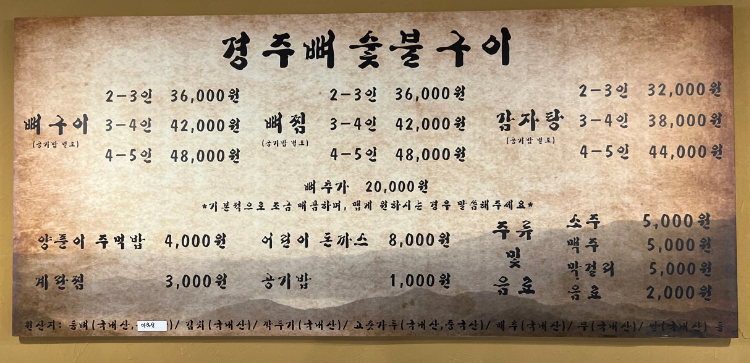 경주뼈숯불구이
뼈구이 (공기밥 별도)
2-3인 36,000원
3-4인 42,000원
4-5인 48,000원
뼈찜 (공기밥 별도)
2-3인 36,000원
3-4인 42,000원
4-5인 48,000원
감자탕 (공기밥 별도)
2-3인 32,000원
3-4인 38,000원
4-5인 44,000원
뼈추가 20,000원
*기본적으로 조금 매콤하며, 맵게 원하시는 경우 말씀해주세요*
양푼이 주먹밥 4,000원
어린이 돈까스 8,000원
계란찜 3,000원
공기밥 1,000원
주류 및 음료
소주 5,000원
맥주 5,000원
막걸리 5,000원
음료 2,000원
원산지: 등뼈(국내산, )/ 김치(국내산)/ 깍두기(국내산)/ 고춧가루(국내산,중국산)/ 배추(국내산)/ 무(국내산)/ 쌀(국내산) 등